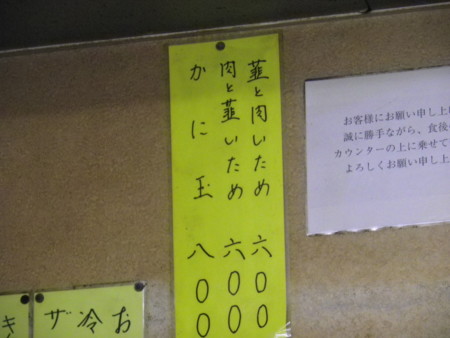 韮と肉いため 六〇〇
肉と韮いため 六〇〇
かに玉 八〇〇
お客様にお願い申し上
誠に勝手ながら、食後
カウンターの上に乗せて
よろしくお願い申し上
お
冷
ザ
き